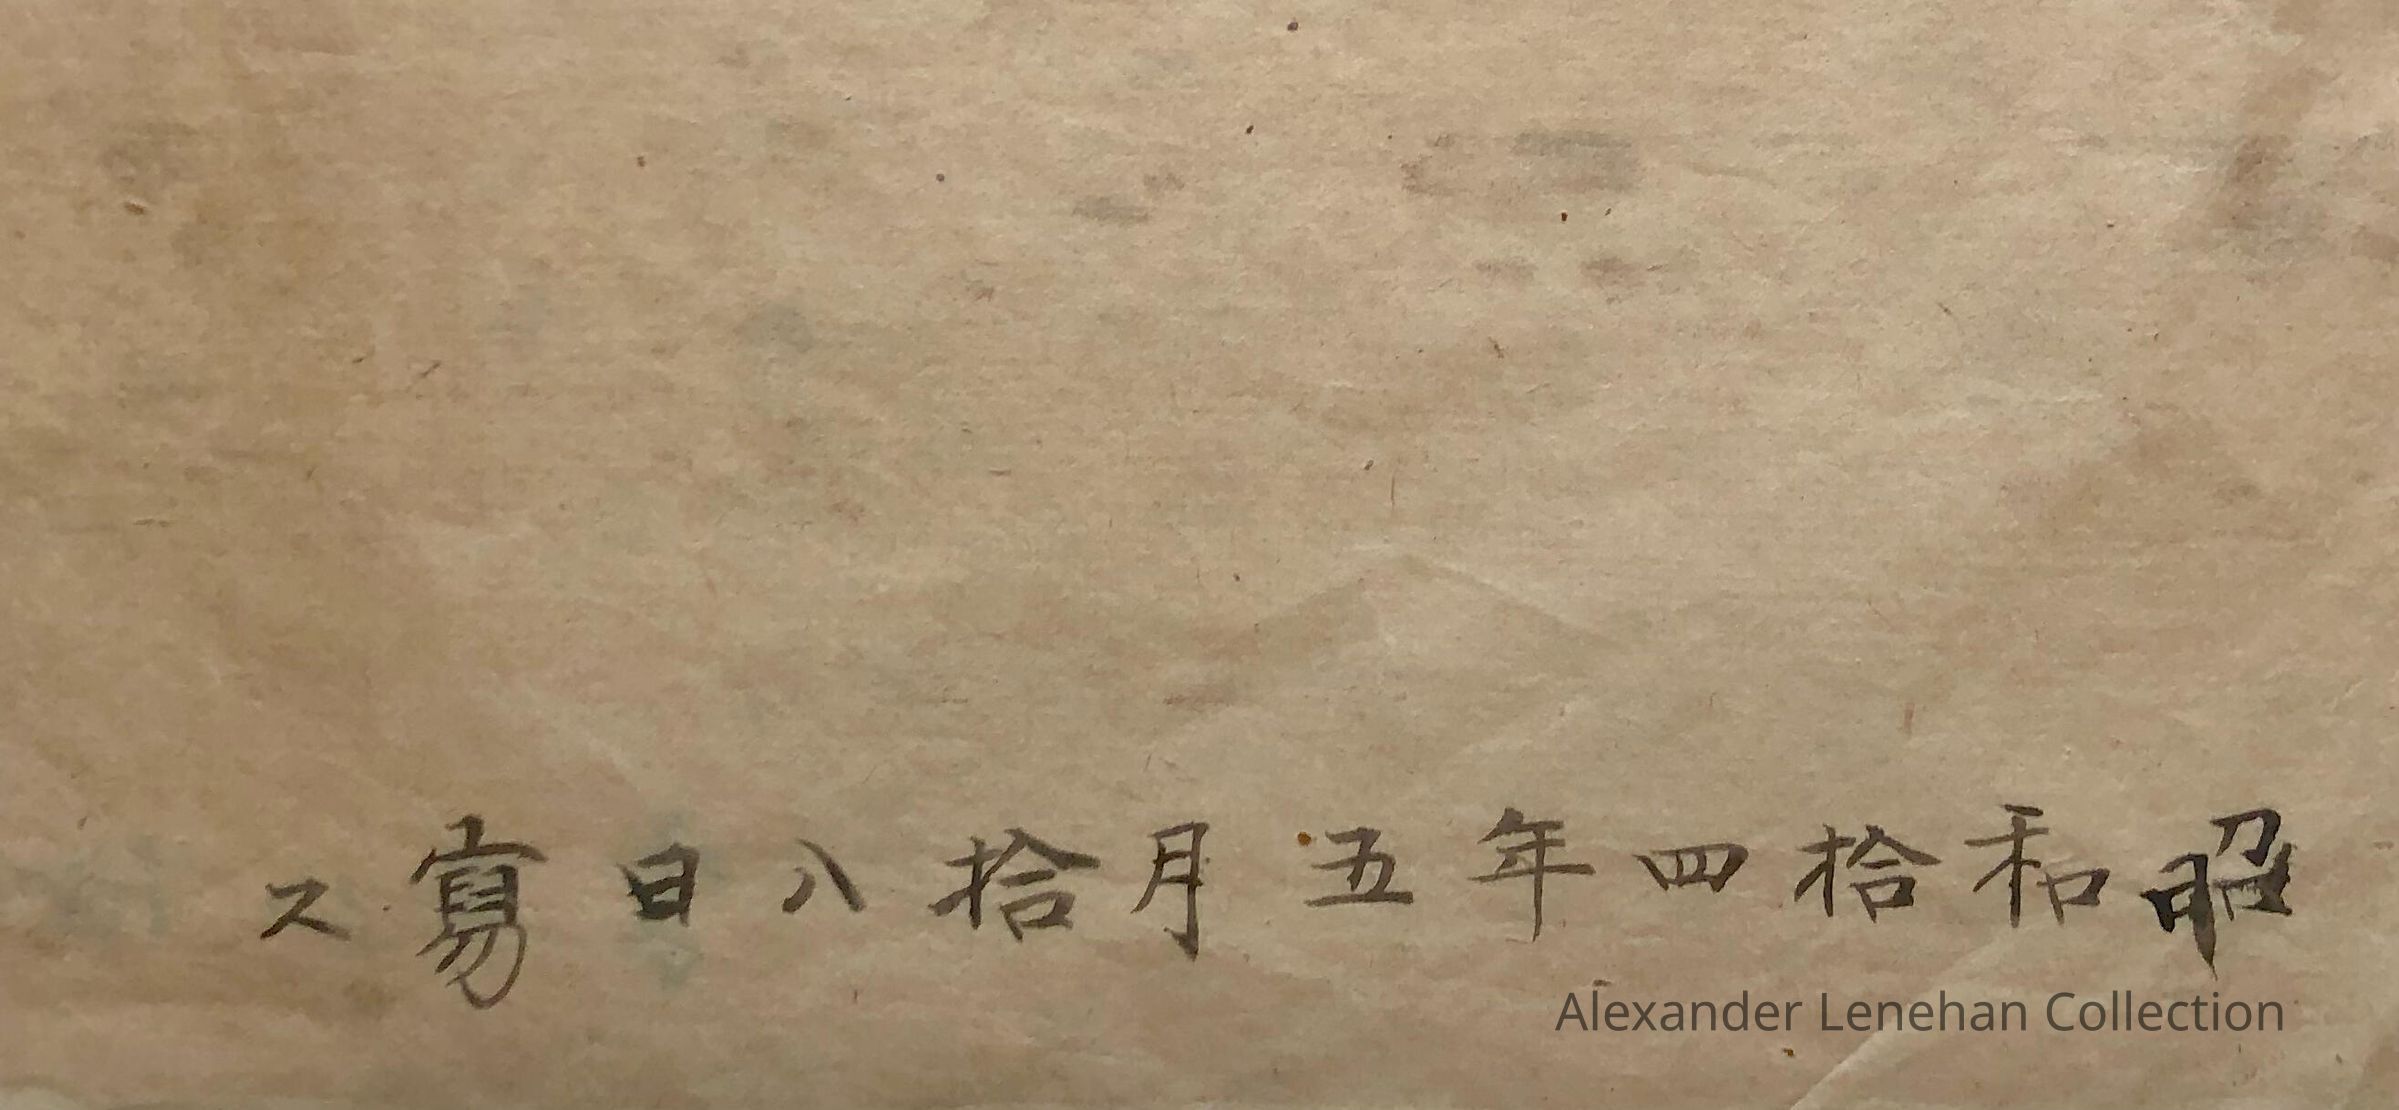 昭和拾四年五月拾八日寫ス
Alexander Lenehan Collection